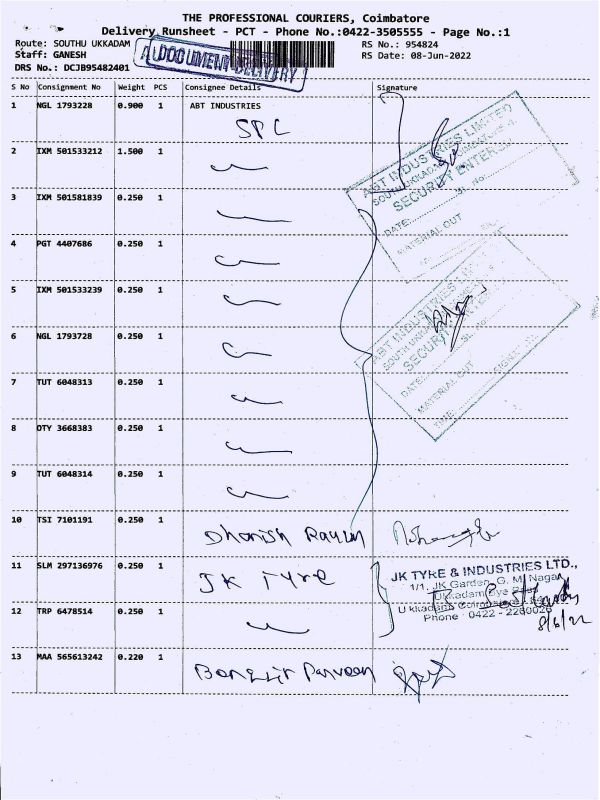 THE PROFESSIONAL COURIERS, Coimbatore
Delivery Runsheet - PCT - Phone No.:0422-3505555 - Page No.:1
Route: SOUTHU UKKADAM
RS No.: 954824
Staff: GANESH
RS Date: 08-Jun-2022
DRS No.: DCJB95482401
S No Consignment No Weight PCS Consignee Details Signature
1 NGL 1793228 0.900 1 ABT INDUSTRIES
SPL
2 IXM 501533212 1.500 1
3 IXM 501581839 0.250 1
4 PGT 4407686 0.250 1
5 IXM 501533239 0.250 1
6 NGL 1793728 0.250 1
7 TUT 6048313 0.250 1
8 OTY 3668383 0.250 1
9 TUT 6048314 0.250 1
10 TSI 7101191 0.250 1
11 SLM 297136976 0.250 1 JK Tyre
12 TRP 6478514 0.250 1
13 MAA 565613242 0.220 1
ABT INDUSTRIES LIMITED
SECURITY ENTER
DATE:
Sl. No:
MATERIAL OUT
ABT INDUSTRIES
DATE:
MATERIAL OUT
TIME:
JK TYRE & INDUSTRIES LTD.,
1/1, JK Garden, G. M. Nagar
Ukkadam
Phone : 0422 - 2260026
8/6/22